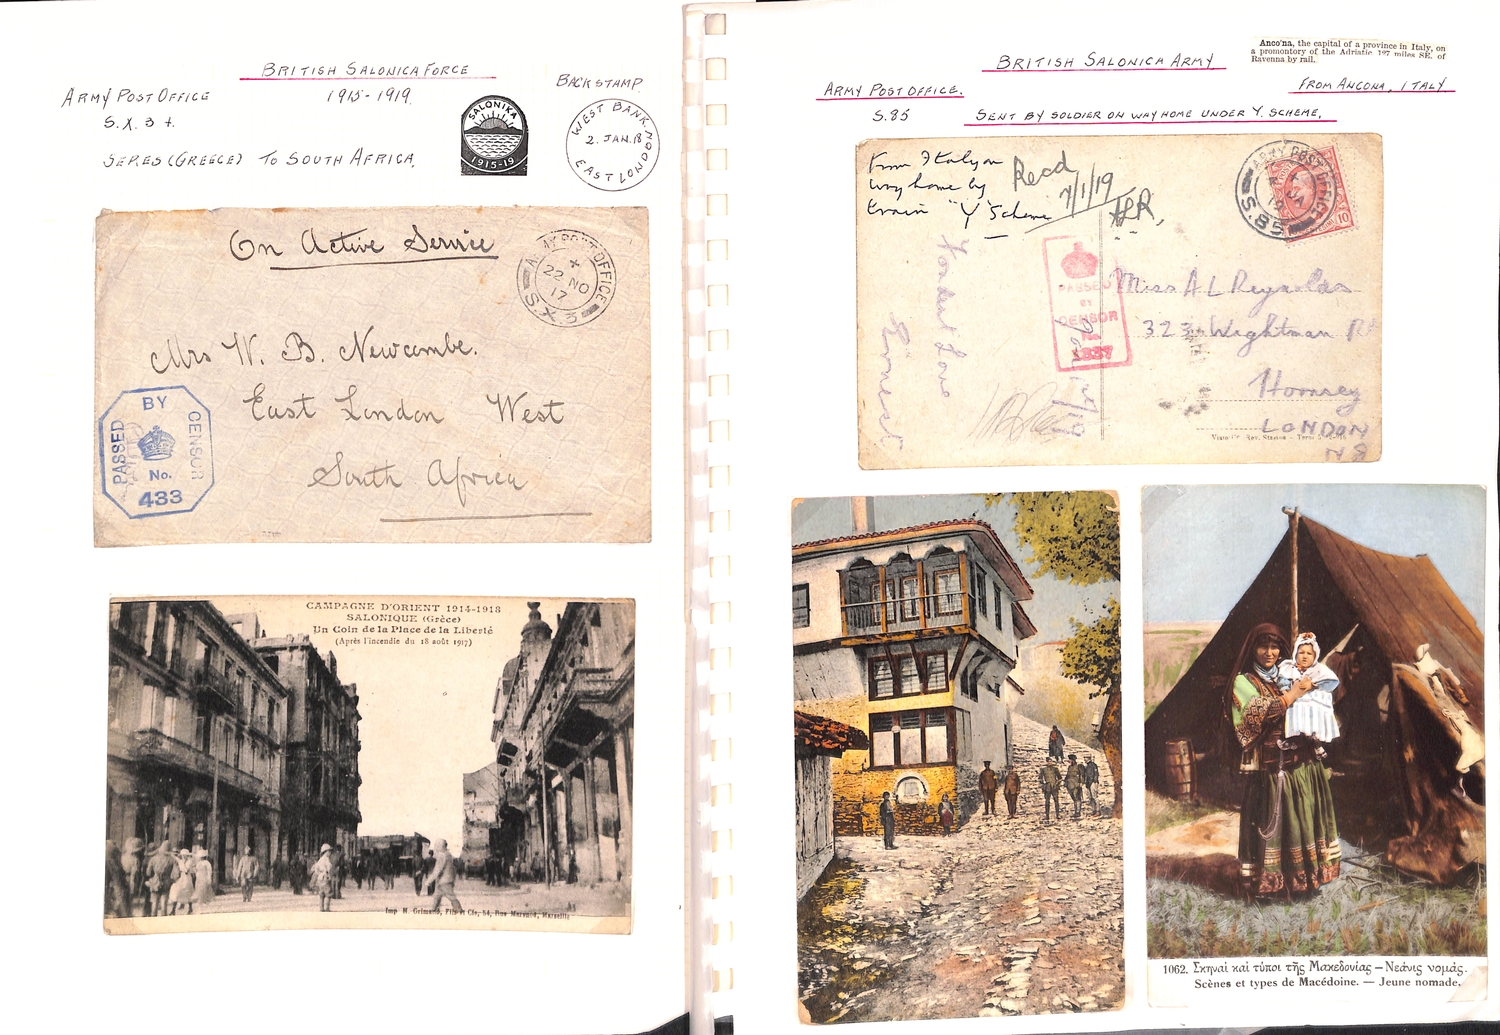 BRITISH SALONICA FORCE
1915-1919.
ARMY POST OFFICE
S.X.3
SERES (GREECE) TO SOUTH AFRICA.
SALONIKA
1915-19
BACKSTAMP
WEST BANK.
2. JAN.18
EAST LONDON
On Active Service
ARMY POST OFFICE
X
22 NO
17
S.X.3
Mrs W. B. Newcombe.
East London West
South Africa
PASSED
BY
CENSOR
No.
433
CAMPAGNE D'ORIENT 1914-1918
SALONIQUE (Grèce)
Un Coin de la Place de la Liberté
(Après l'incendie du 18 août 1917)
Imp. H. Grimaud, Fils et Cie, 54, Rue Marengo, Marseille
BRITISH SALONICA ARMY
Anco'na, the capital of a province in Italy, on
a promontory of the Adriatic 127 miles SE. of
Ravenna by rail.
ARMY POST OFFICE.
S.85
FROM ANCONA, ITALY
SENT BY SOLDIER ON WAY HOME UNDER Y. SCHEME.
From Italy on
way home by
train "Y" Scheme
Recd
7/1/19
ALR.
ARMY POST OFFICE
JA
19
S.85
10
Fondest Love
Ernest
PASSED
BY
CENSOR
No
Miss A L Reynolds
323 Wightman Rd
Hornsey
LONDON
N 8
1062. Σκηναὶ καὶ τύποι τῆς Μακεδονίας – Νεάνις νομάς.
Scènes et types de Macédoine. — Jeune nomade.